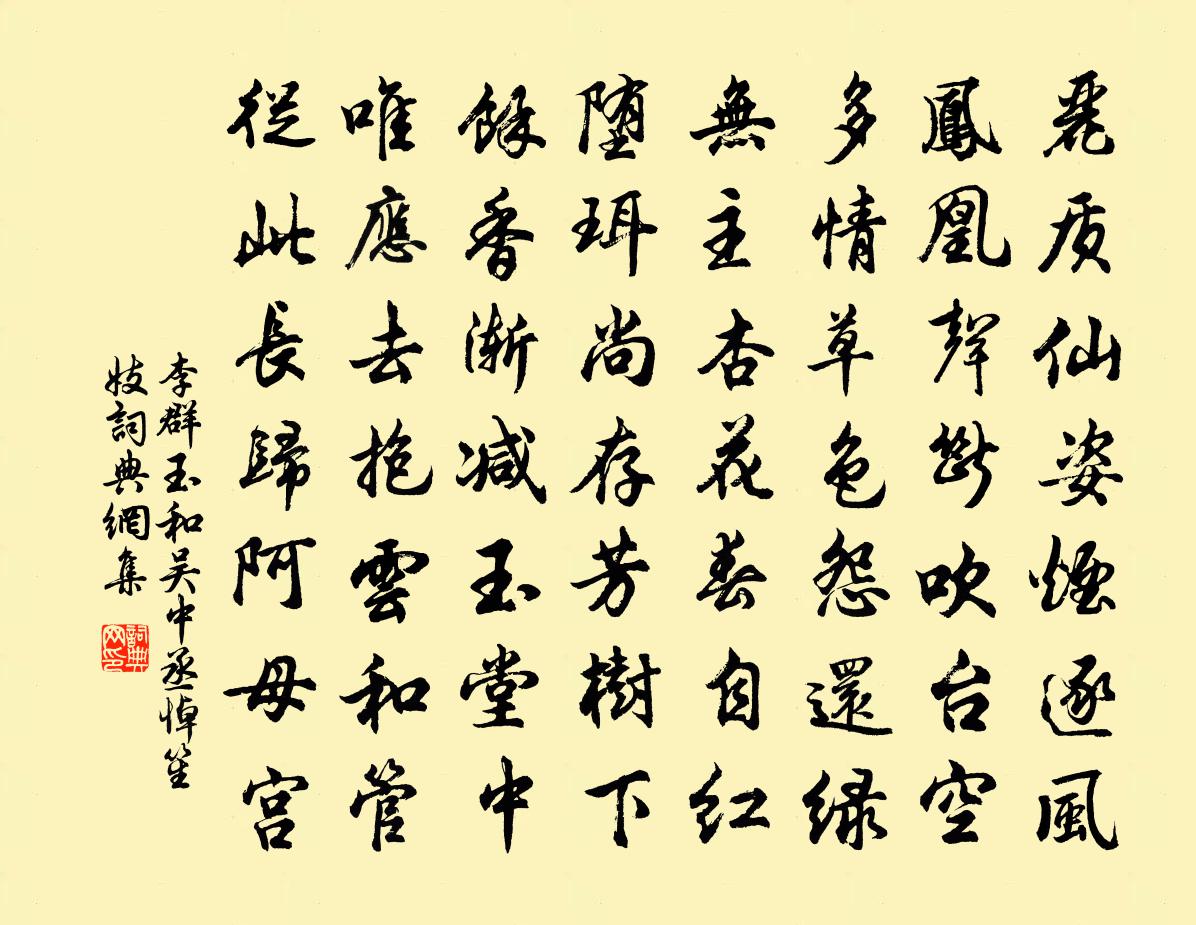 麗质仙姿煙逐風
鳳凰聲斷吹台空
多情草色怨還綠
無主杏花春自紅
堕珥尚存芳樹下
餘香漸减玉堂中
唯應去抱雲和管
從此長歸阿母宮
李群玉和吴中丞悼笙
妓詞典網集
詞典
网印